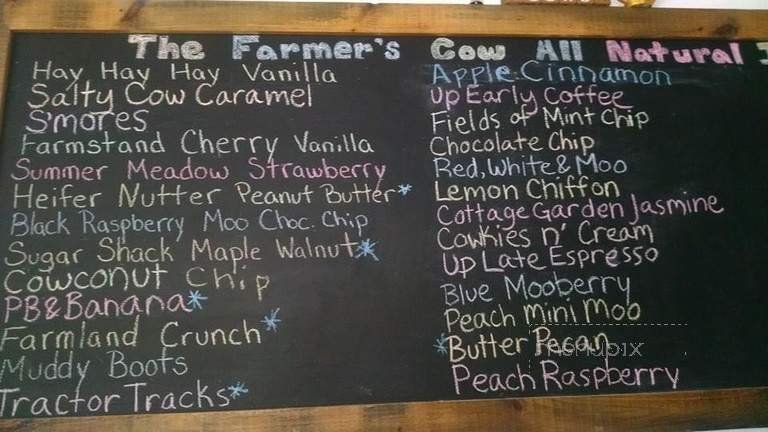 The Farmer's Cow All Natural I
Hay Hay Hay Vanilla
Salty Cow Caramel
S'mores
Farmstand Cherry Vanilla
Summer Meadow Strawberry
Heifer Nutter Peanut Butter*
Black Raspberry Moo Choc. Chip
Sugar Shack Maple Walnut*
Cowconut Chip
PB&Banana*
Farmland Crunch*
Muddy Boots
Tractor Tracks*
Apple Cinnamon
Up Early Coffee
Fields of Mint Chip
Chocolate Chip
Red, White & Moo
Lemon Chiffon
Cottage Garden Jasmine
Cowkies n' Cream
Up Late Espresso
Blue Mooberry
Peach Mini Moo
*Butter Pecan
menupix
Peach Raspberry